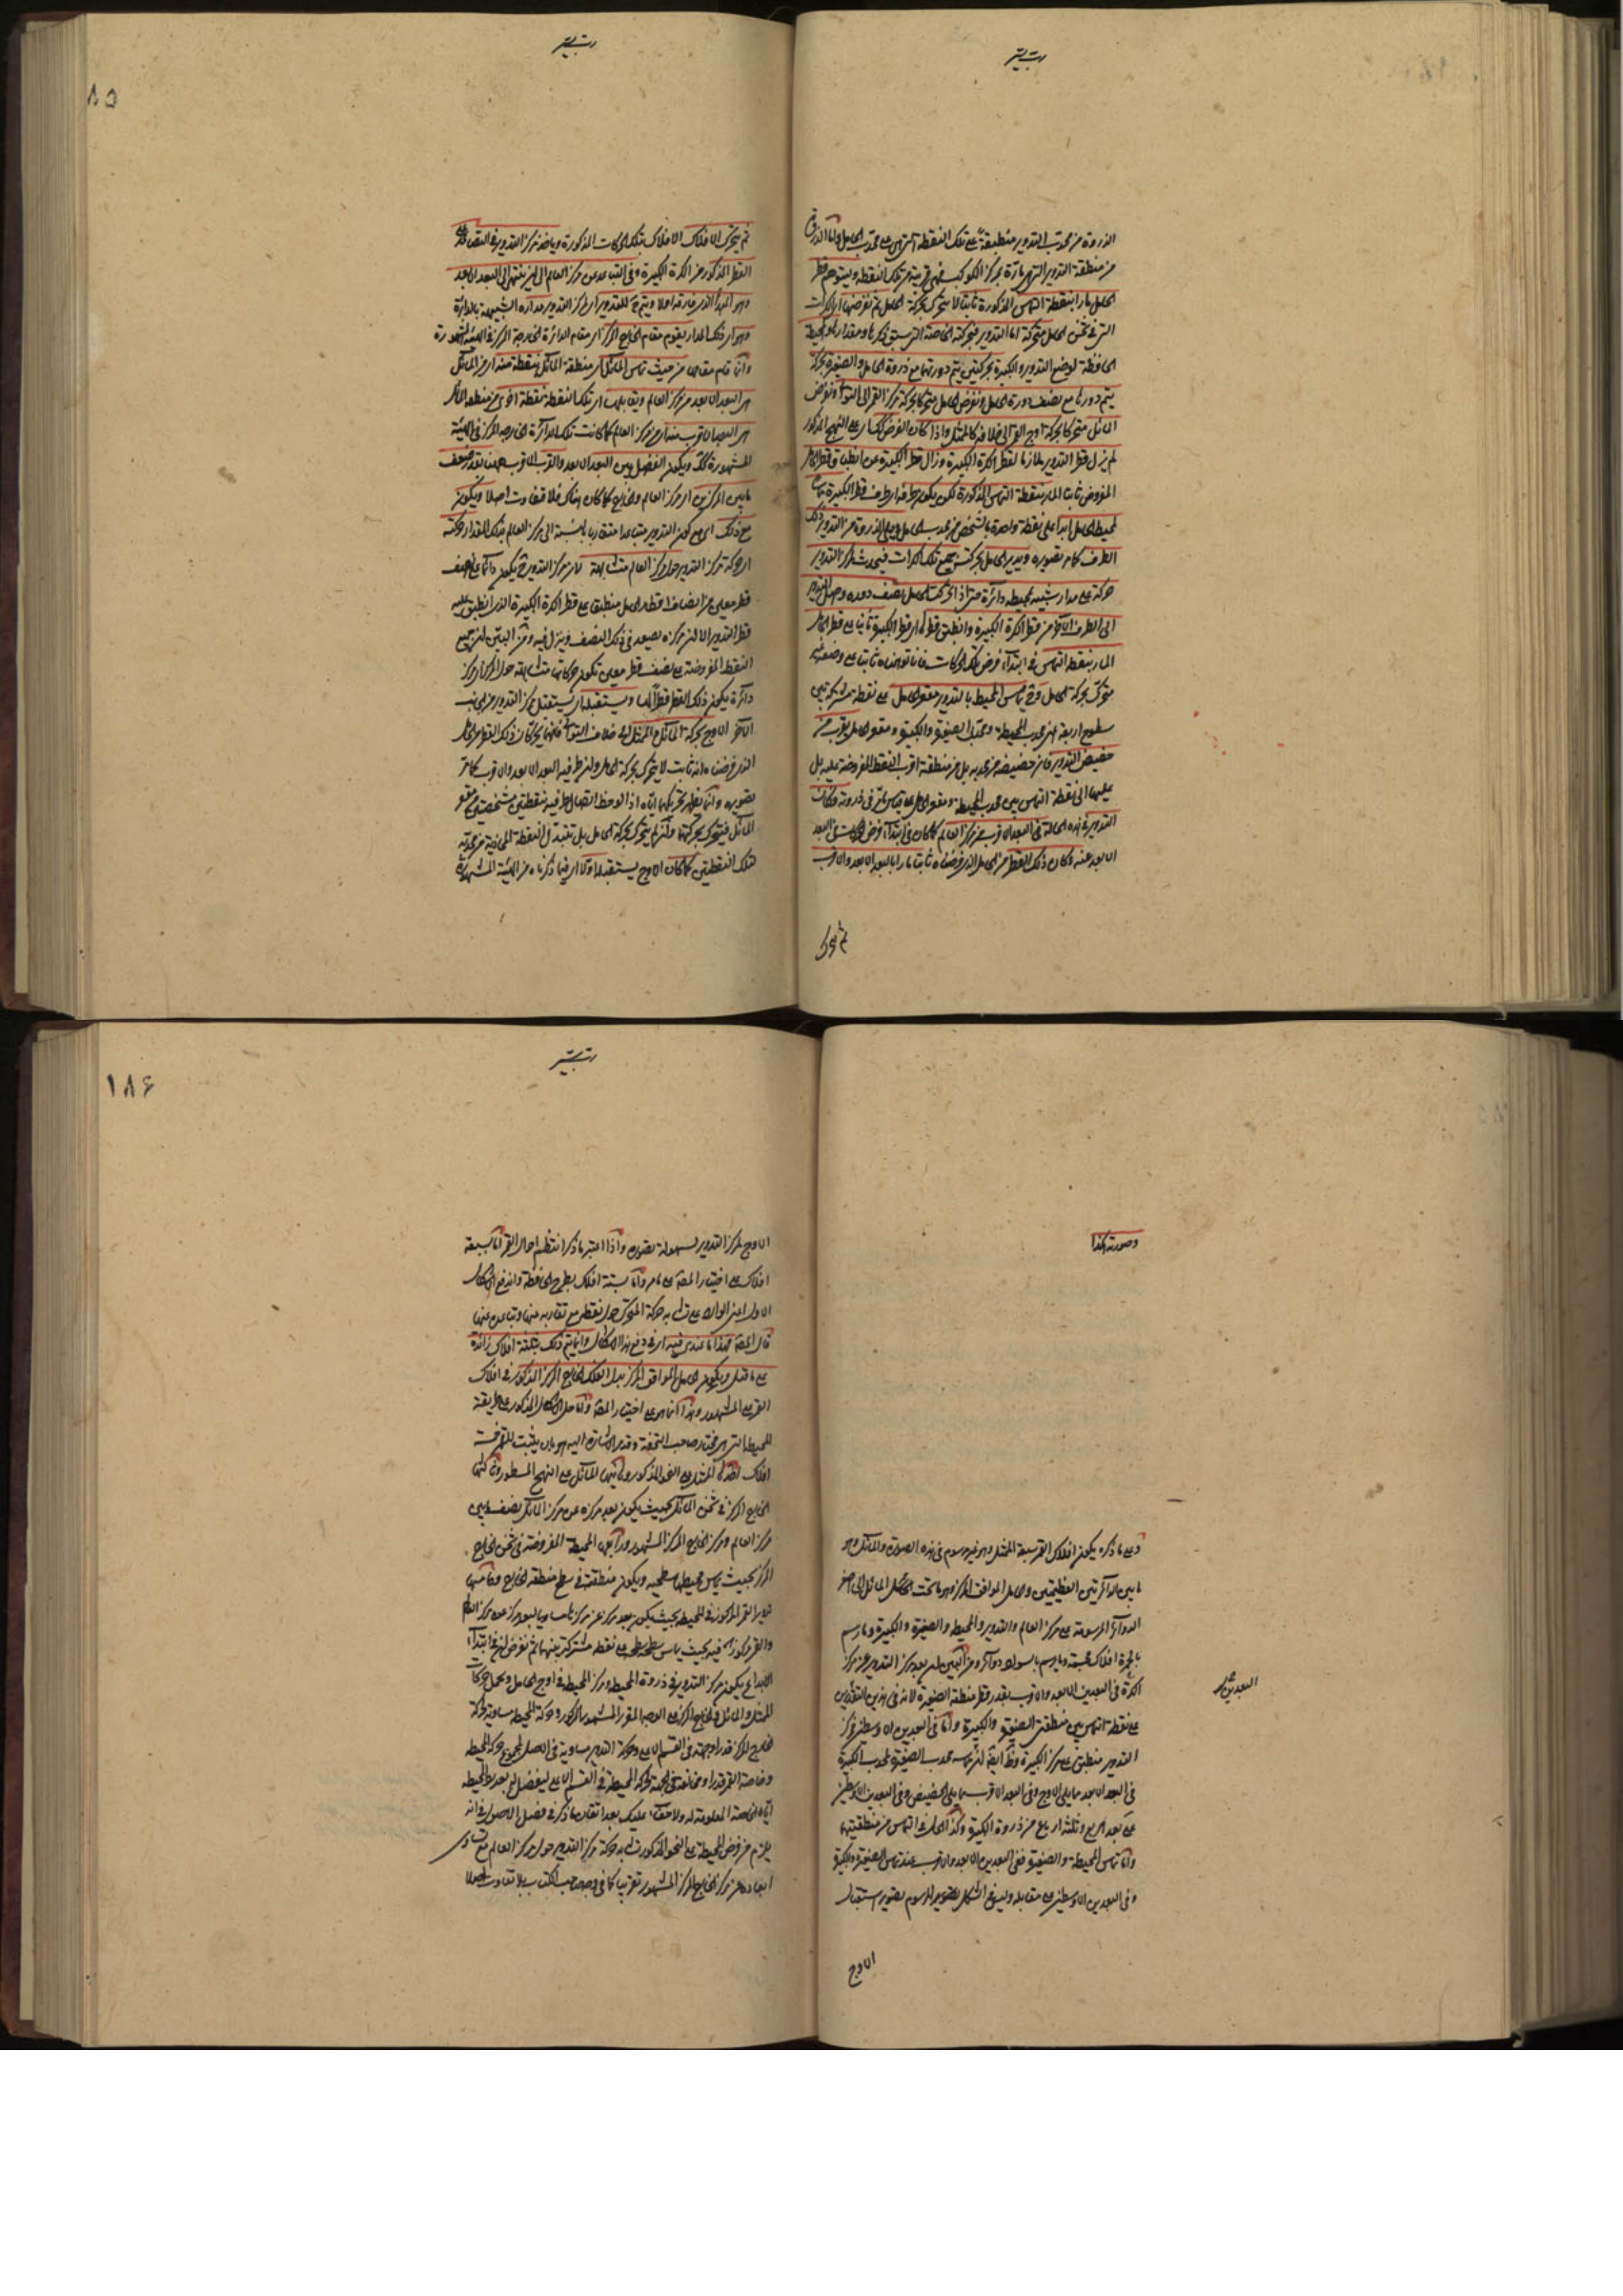 الذروة من محدب التدوير منطبقة على تلك النقطة التي هي على محدب الحامل واما الذروة
من منطقة التدوير التي مارة بمركز الكوكب فهي قريبة من تلك النقطة ويتوهم قطر
الحامل مارا بنقطة التماس المذكورة ثابتا لا يتحرك بحركة الحامل ثم نفرض الكرات
التي في ثخن الحامل متحركة اما التدوير فبحركته الخاصة التي سبق ذكرها ومقدارها والمحيطة
الحافظة لوضع التدوير والكبيرة بحركتين يتم دورتهما مع دورة الحامل والصغيرة بحركة
يتم دورها مع نصف دورة الحامل ونفرض الحامل متحركا بحركة مركز القمر الى التوالي ونفرض
المائل متحركا بحركة اوج القمر الى خلافه كالممثل واذا كان الفرض كذلك على النهج المذكور
لم يزل قطر التدوير ملازما لقطر الكرة الكبيرة وزال قطر الكبيرة عن انطباق قطر الحامل
المفروض ثابتا المار بنقطة التماس المذكورة لكن يكون طرفه اي طرف قطر الكبيرة مماسا
لمحيط الحامل ابدا على نقطة واحدة بالشخص من محدب الحامل ويلي الذروة من التدوير ذلك
الطرف كما مر تصويره ويدير الحامل بحركته جميع تلك الكرات فيحدث لمركز التدوير
حركة على مدار شبيه بمحيط دائرة حتى اذا تحركت الحامل نصف دوره وصل التدوير
الى الطرف الآخر من قطر الكرة الكبيرة وانطبق قطر الكبيرة ثانيا على قطر الحامل
المار بنقطة التماس في ابتداء فرض تلك الحركات فانا توهمناه ثابتا على وضعه غير
متحرك بحركة الحامل وح يماس المحيط بالتدوير مقعر الحامل على نقطة مشتركة بين
سطوح اربعة هي محدب المحيطة ومحدب الصغيرة والكبيرة ومقعر الحامل بقرب من
حضيض التدوير فان حضيضه من محدبه بل من منطقته اقرب النقط المفروضة عليه بل
عليهما الى نقطة التماس بين محدب المحيطة ومقعر الحامل على قياس ما مر في ذروته فكان
التدوير في هذه الحالة في البعد الاقرب من مركز العالم كما كان في ابتداء فرض الحركات في البعد
الابعد عنه وكان ذلك القطر من الحامل الذي فرضناه ثابتا مارا بالبعد الابعد والاقرب
ثم يتحرك
ثم يتحرك الافلاك بتلك الحركات المذكورة وياخذ مركز التدوير في الصعود على
القطر المذكور من الكرة الكبيرة وفي التباعد عن مركز العالم الى ان ينتهي الى البعد الابعد
وهو المبدأ الذي فارقه اولا ويتم ح للتدوير اي لمركز التدوير مداره الشبيه بالدائرة
وهو اي ذلك المدار يقوم مقام الخارج المركز اي مقام الدائرة الخارجة المركز في الهيئة المشهورة
وانما قام مقامها من حيث تماس المائل اي منطقة المائل بنقطة منه اي من المائل
هي البعد الابعد من مركز العالم ويقابلها اي تلك النقطة بنقطة اخرى من منطقة المائل
هي البعد الاقرب منه اي من مركز العالم كما كانت تلك الدائرة الخارجة المركز في الهيئة
المشهورة كك ويكون الفضل بين البعد الابعد والاقرب ههنا بقدر ضعف
ما بين المركزين اي مركز العالم والخارج كما كان هناك فلا تفاوت اصلا ويكون
مع ذلك اي مع كون التدوير متباعدا متقاربا بالنسبة الى مركز العالم بذلك المقدار حركته
اي حركة مركز التدوير حول مركز العالم متشابهة لان مركز التدوير ح يكون دائما على نصف
قطر معين من انصاف اقطار الحامل منطبق على قطر الكرة الكبيرة الذي انطبق عليه
قطر التدوير الا ان مركزه يصعد في ذلك النصف وينزل فيه ومن البين ان جميع
النقط المفروضة على نصف قطر معين تكون حركاتها متشابهة حول المركز اي مركز
دائرة يكون ذلك القطر قطرا لها ويستقبله اي يستقبل مركز التدوير من الجانب
الآخر الاوج بحركة المائل والممثل الى خلاف التوالي فانهما يحركان ذلك القطر من الحامل
الذي فرضناه انه ثابت لا يتحرك بحركة الحامل وان طرفيه البعد الابعد والاقرب كما مر
تصويره وانما يظهر تحريكهما اياه اذا لوحظ اتصال طرفيه بنقطتين مشخصتين من مقعر
المائل فيتحرك بحركتهما وانه لم يتحرك بحركة الحامل بل تتبدل النقطة المحاذية من محدبه
لتلك النقطتين كما كان الاوج يستقبله اولا اي فيما ذكرناه من الهيئة المشهورة
١٨٥
وصورته هكذا
وعلى ما ذكره يكون افلاك القمر سبعة الممثل وهو غير مرسوم في هذه الصورة والمائل وهو
ما بين الدائرتين العظيمتين والحامل الموافق المركز وهو ما تحت المائل الى اصغر
الدوائر المرسومة على مركز العالم والتدوير والمحيطة والصغيرة والكبيرة وما رسم
بالحمرة افلاك مجسمة وما رسم بالسواد دوائر ومن البين ان بعد مركز التدوير عن مركز
الكرة في البعدين الابعد والاقرب بقدر قطر منطقة الصغيرة لانه في هذين التقديرين
على نقطة التماس بين منطقتي الصغيرة والكبيرة واما في البعدين الاوسطين فمركز
التدوير منطبق على مركز الكبيرة وظ ايضا ان تماس محدب الصغيرة لمحدب الكبيرة
في البعد الابعد مما يلي الاوج وفي البعد الاقرب مما يلي الحضيض وفي البعدين الاوسطين
على بعد الربع وثلثة ارباع من ذروة الكبيرة وكذا الحال في التماس من منطقتيهما
واما تماس المحيطة والصغيرة ففي البعدين الابعد والاقرب عند تماس الصغيرة والكبيرة
وفي البعدين الاوسطين على مقابله وليس في الشكل تصوير المرسوم تصوير استقبال
الاوج
الاوج لمركز التدوير لسهولة تصوره واذا اعتبر ما ذكر انتظم احوال القمر اما بسبعة
افلاك على اختيار المصنف على ما مر واما بستة افلاك بطرح الحافظة واندفع الاشكال
الاول اعني الوارد على تشابه حركة المتحرك حول نقطة مع تقاربه منها وتباعده عنها
قال المصنف فهذا ما عندي فيه اي في دفع هذا الاشكال وانما يتم ذلك بثلثة افلاك زائدة
على ما قيل ويكون الحامل الموافق المركز بدل الفلك الخارج المركز المذكور في افلاك
القمر على المشهور وهذا انما هو على اختيار المصنف واما حل الاشكال المذكور على طريقة
المحيطة التي هي مختار صاحب التحفة وقد مر الاشارة اليه هو بان يثبت للقمر ستة
افلاك اولها الممثل على النحو المذكور وثانيها المائل على النهج المسطور وثالثها
الخارج المركز في ثخن المائل بحيث يكون بعد مركزه عن مركز المائل نصف ما بين
مركز العالم ومركز الخارج المركز المشهور ورابعها المحيطة المفروضة في ثخن الخارج
المركز بحيث يماس محيطها سطحيه ويكون منطقته في سطح منطقة الخارج وخامسها
تدوير القمر المركوز في المحيطة بحيث يكون بعد مركزه عن مركزها مساويا لبعد مركزه عن مركز العالم
والقمر مركوز فيه بحيث يماس سطحه سطحه على نقطة مشتركة بينهما ثم نفرض انه في ابتداء
الابداع يكون مركز التدوير في ذروة المحيطة ومركز المحيطة في اوج الحامل ونجعل حركات
الممثل والمائل والخارج المركز على الوجه المقرر المشهور المذكور وحركة المحيطة مساوية لحركة
الخارج المركز قدرا وجهة في القسم الاعلى وحركة التدوير مساوية في الاصل لمجموع حركة المحيطة
وخاصة القمر قدرا ومخالفة في الجهة لحركة المحيطة في القسم الاعلى ليفضل له بعد رد المحيطة
اياه الخاصة المعلومة له ولا خفاء عليك بعد اتقان ما ذكر في فصل الاصول في انه
يلزم من فرض المحيطة على النحو المذكور تشابه حركة مركز التدوير حول مركز العالم مع تساوي
ابعاده عن مركز الخارج المركز المشهور تقريبا كما في وجه صاحب الكتاب بلا تفاوت اصلا
١٨٦